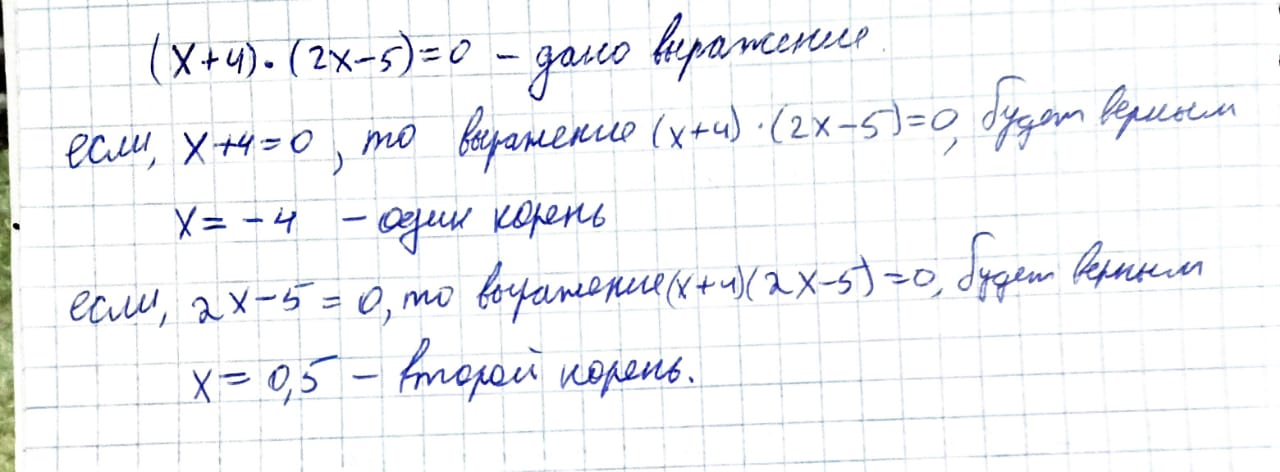 (x+4)·(2x-5)=0 - дано выражение.
если, x+4=0, то выражение (x+4)·(2x-5)=0, будет верным
x= -4 - один корень
если, 2x-5=0, то выражение (x+4)(2x-5)=0, будет верным
x= 0,5 - второй корень.